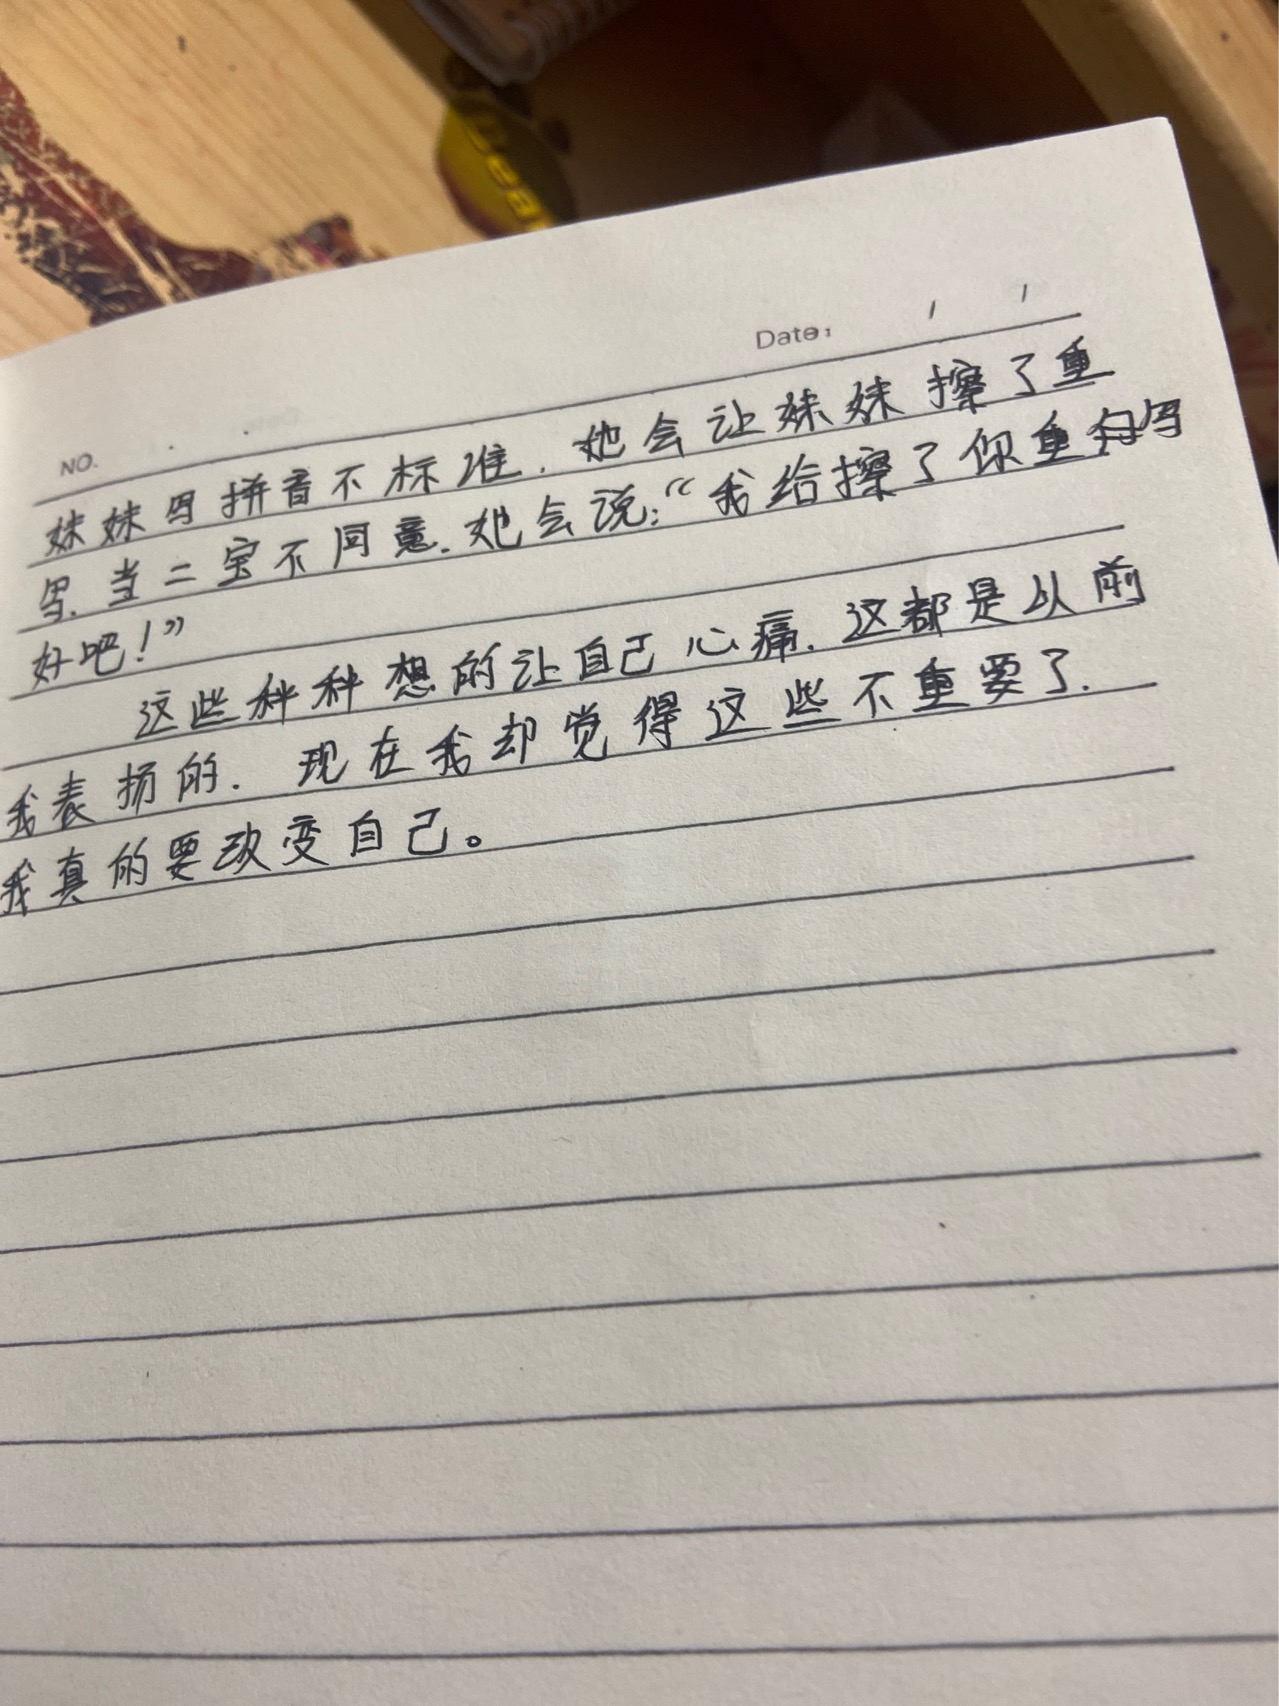 Date: / /
NO.
妹妹写拼音不标准.她会让妹妹擦了重
写.当二宝不同意.她会说:“我给擦了你重写
好吧!”
这些种种想的让自己心痛.这都是以前
我表扬的.现在我却觉得这些不重要了.
我真的要改变自己。